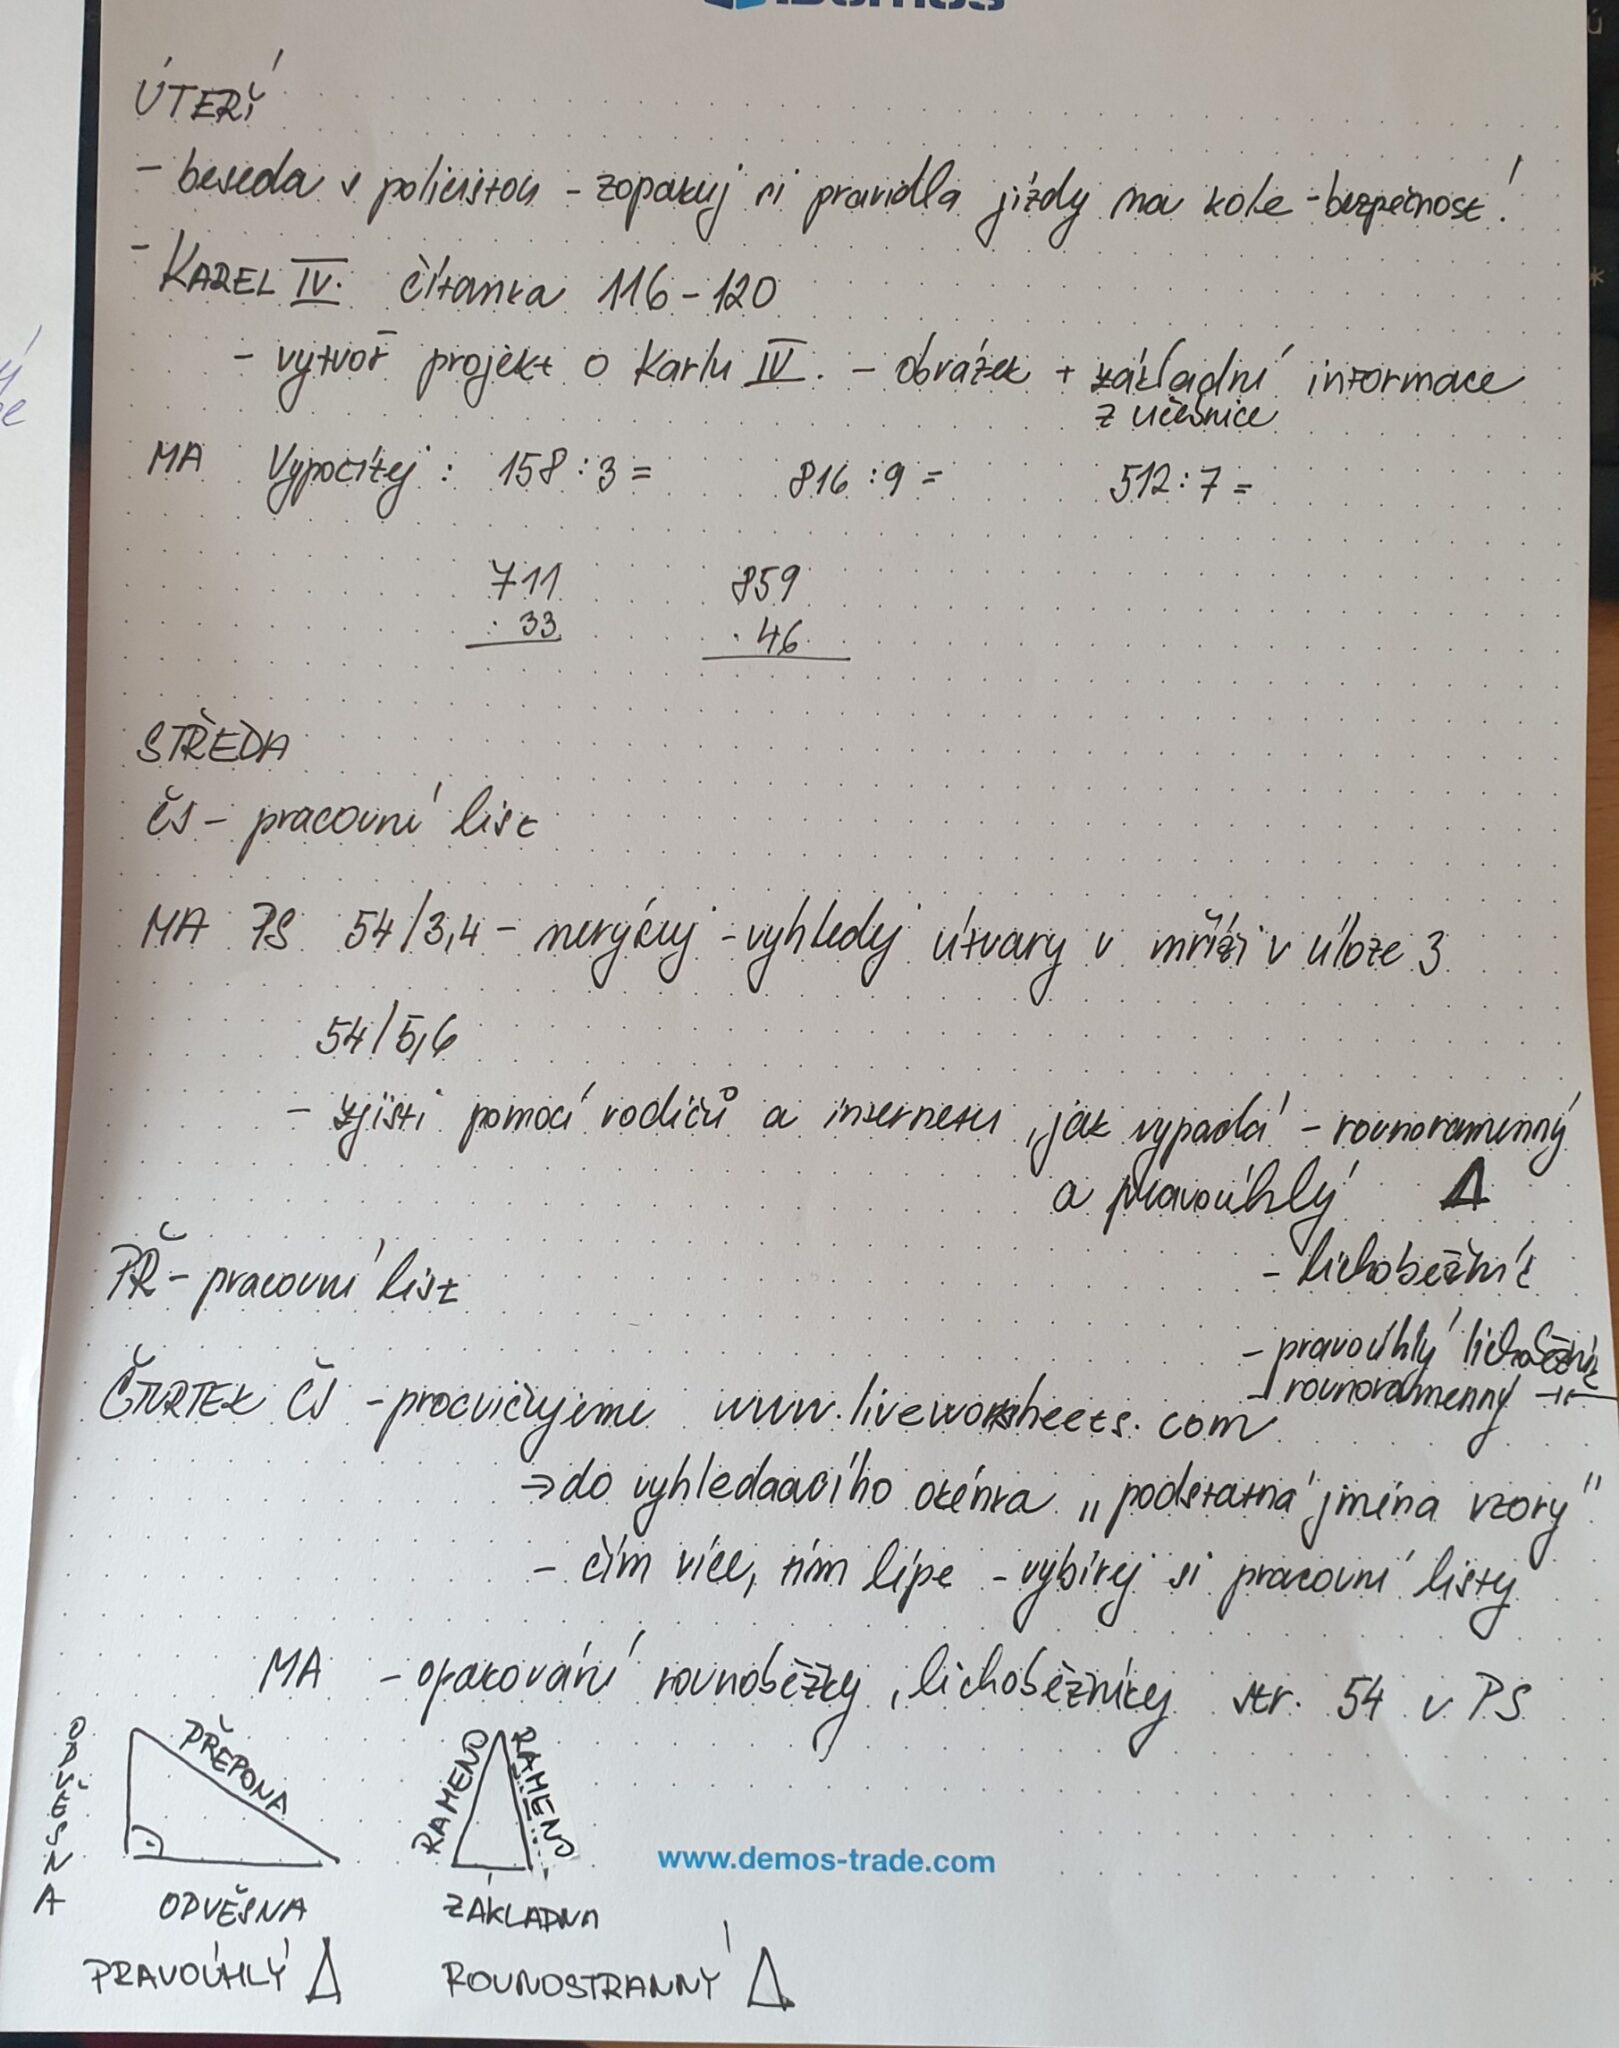 ÚTERÍ
- beseda s policistou - zopakuj si pravidla jízdy na kole - bezpečnost!
- KAREL IV. čítanka 116-120
- vytvoř projekt o Karlu IV. - obrázek + základní informace
z učebnice
MA Vypočítej: 158:3= 816:9= 512:7=
711 859
. 33 . 46
STŘEDA
ČJ - pracovní list
MA PS 54/3,4 - nerýsuj - vyhledej útvary v mříži v úloze 3
54/5,6
- zjisti pomocí rodičů a internetu, jak vypadá - rovnoramenný
a pravoúhlý Δ
- lichoběžník
PŘ - pracovní list
- pravoúhlý lichoběžník
- rovnoramenný -II-
ČTVRTEK ČJ - procvičujeme www.liveworksheets.com
⇒ do vyhledaacího okénka „podstatná jména vzory"
- čím více, tím lépe - vybírej si pracovní listy
MA - opakování rovnoběžky, lichoběžníky str. 54 v PS
ODVĚSNA PŘEPONA RAMENO RAMENO
www.demos-trade.com
ODVĚSNA ZÁKLADNA
PRAVOÚHLÝ Δ ROVNOSTRANNÝ Δ